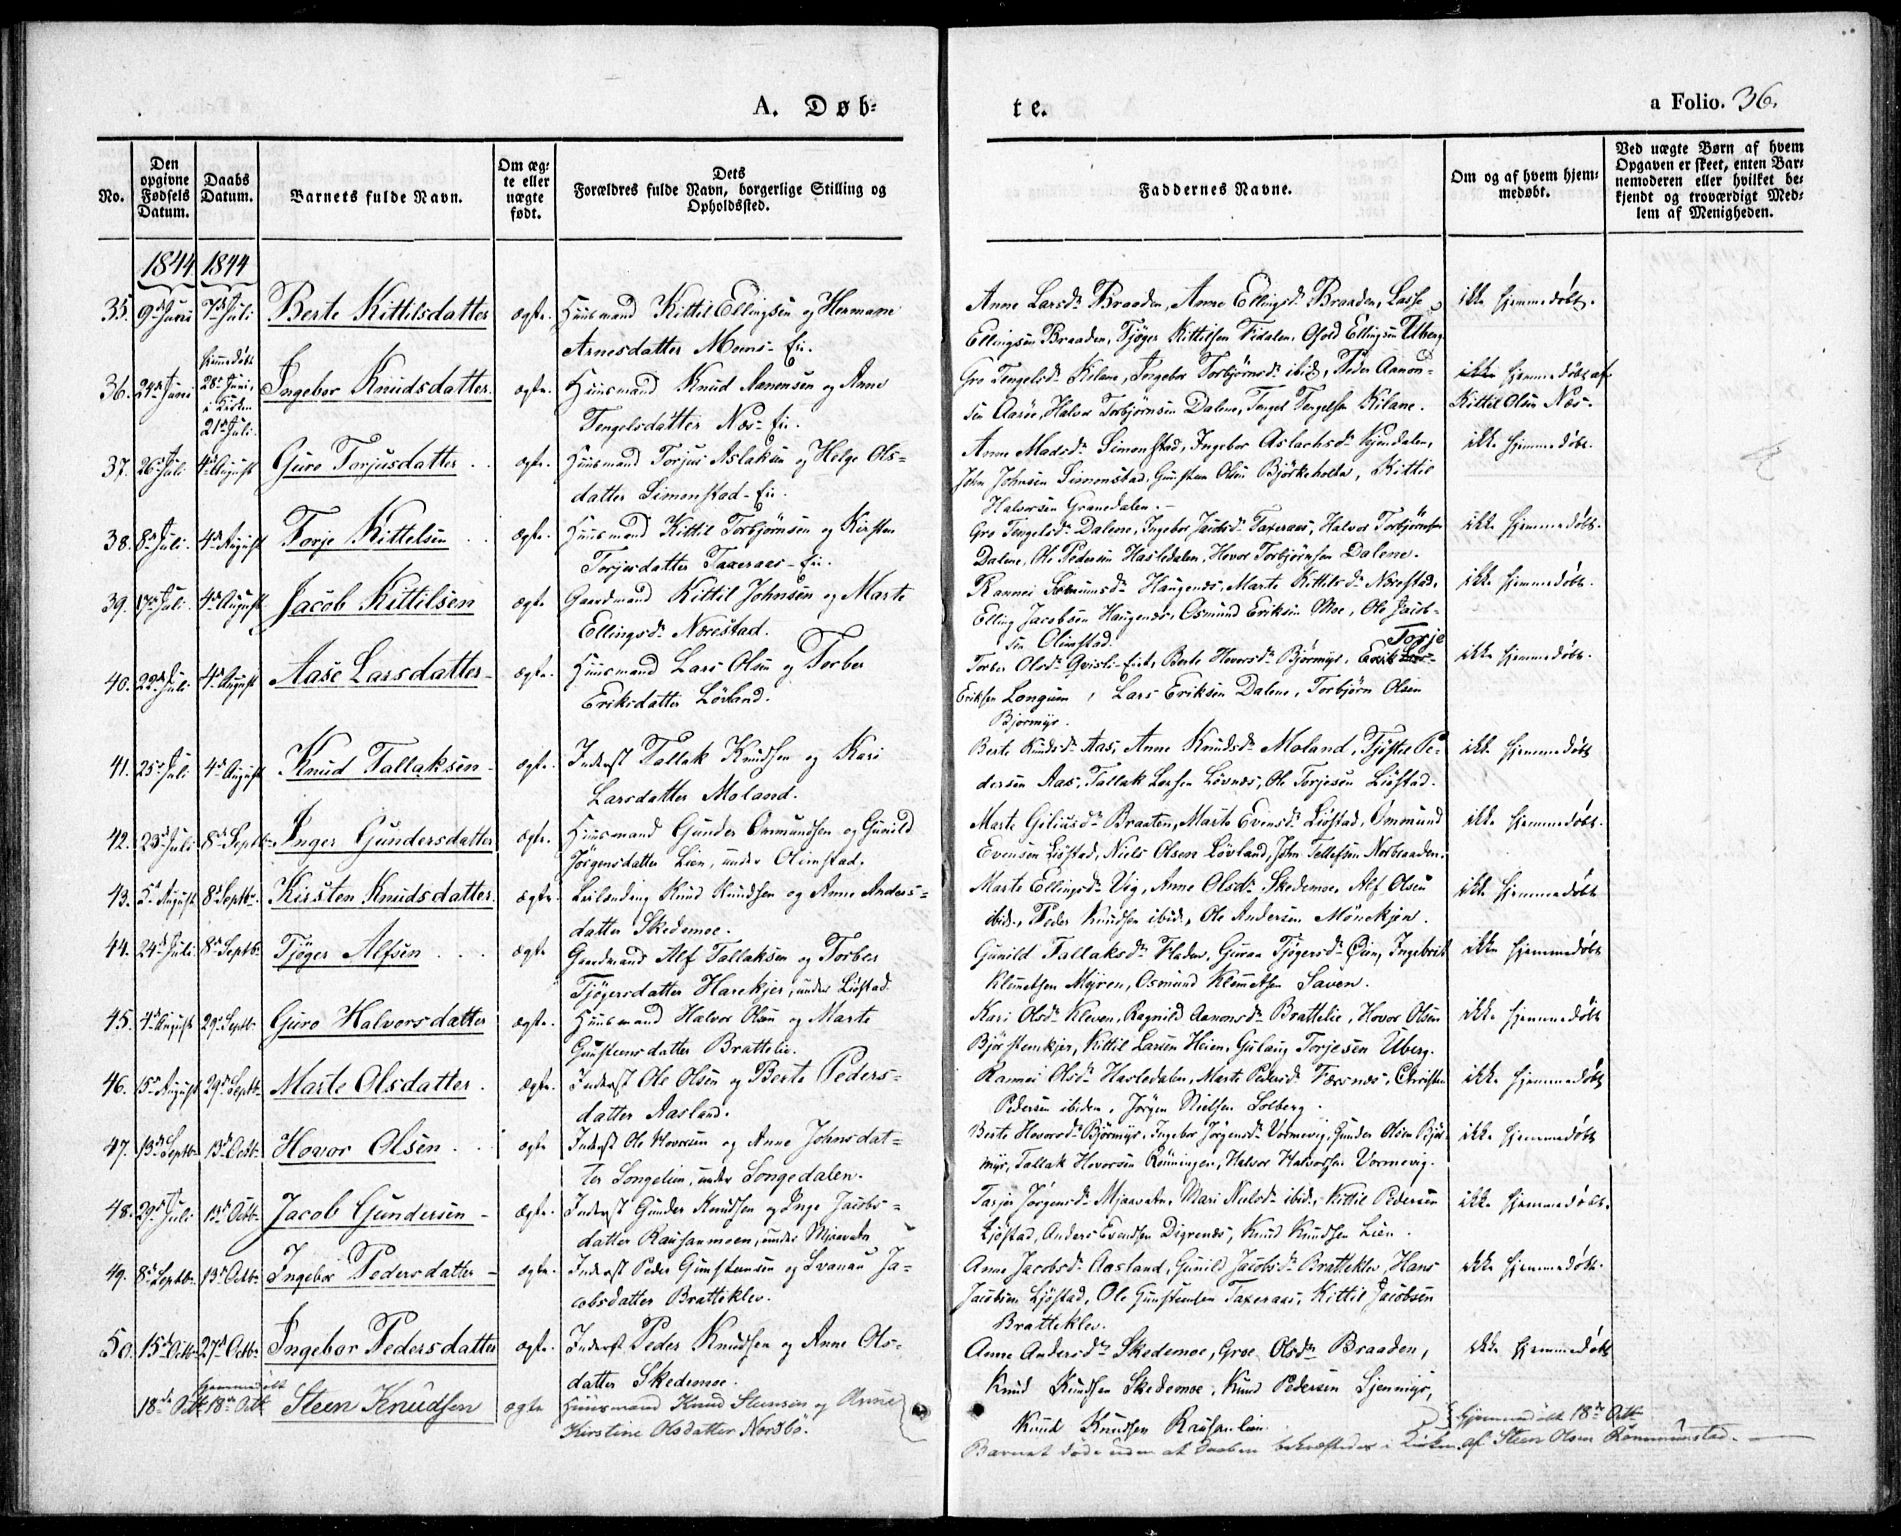 A. Døb-
te.
a Folio. 36.
No.
Den opgivne Fødsels Datum.
Daabs Datum.
Barnets fulde Navn.
Om æg-
te eller
uægte
født.
Dets
Forældres fulde Navn, borgerlige Stilling og
Opholdssted.
Faddernes Navne.
Om og af hvem hjem-
medøbt.
Ved uægte Børn af hvem
Opgaven er skeet, enten Bar-
nemoderen eller hvilket be-
kjendt og troværdigt Med-
lem af Menigheden.
1844 1844
35. 9de Juni 7de Juli Berte Kittilsdatter ægte. Huusmand Kittil Ellingsen og Hermane
Arnesdatter Moens-Eie.
Anne Larsdr Braaden, Anne Ellingsdr Braaden, Lasse
Ellingsen Braaden, Tjøger Kittilsen Fidalen, Osold Ellingsen Uberg
ikke hjemmedøbt.
36. 24de Juni hjemmedøbt 28de Juni, i Kirken 21de Juli. Ingebor Knudsdatter. ægte. Huusmand Knud Aanensen og Anne
Tengelsdatter Næs-Eie.
Gro Tengelsdr Kilane, Ingebor Torbjørnsdr ibid, Peder Aanon-
sen Aaröe, Halvor Torbjørnsen Dalene, Tengel Tengelsen Kilane.
hjemmedøbt af
Kittil Olsen Næs.
37. 26de Juli 4de August Guro Torjusdatter ægte. Huusmand Torjus Aslaksen og Helge Ols-
datter Simonstad-Eie.
Anne Madsdr Simonstad, Ingebor Aslaksdr
John Johnsen Simonstad, Gunsten Olsen Björkeholdt, Kittil
Halvorsen Granedalen.
ikke hjemmedøbt.
38. 8de Juli. 4de August Torje Kittelsen ægte. Huusmand Kittil Torbjørnsen og Kirsten
Torjesdatter Taxeraas-Eie.
Gro Tengelsdr Dalene, Ingebor Jacobsdr Taxeraas, Halvor Torbjørnsen
Dalene, Ole Pedersen Hasledalen, Hovor Torbjørnsen Dalene.
ikke hjemmedøbt.
39. 17de Juli. 4de August Jacob Kittilsen ægte Gaardmand Kittil Johnsen og Marte
Ellingsdr Nærestad.
Rannei Haugenes, Marte Kittilsdr Nærestad,
Elling Jacobsen Haugenes, Osmund Eriksen Moe, Ole Jacob-
sen Olimstad.
ikke hjemmedøbt.
40. 22de Juli 4de August Aase Larsdatter ægte. Huusmand Lars Olsen og Torber
Eriksdatter Lövland.
Torje
Torber Olsdr Berte Hovorsdr Bjørmyr,
Eriksen Longum, Lars Eriksen Dalene, Torbjørn Olsen
Bjørmyr.
ikke hjemmedøbt.
41. 25de Juli 4de August Knud Tallaksen ægte. Inderst Tallak Knudsen og Kari
Larsdatter Moland.
Berte Knudsdr Aas, Anne Knudsdr Moland, Pe-
dersen Aas, Tallak Larsen Lövnes, Ole Torjesen Liöstad.
ikke hjemmedøbt
42. 23de Juli 8de Septbr. Inger Gundersdatter ægte. Huusmand Gunder Ommundsen og Gunild
Jörgensdatter Lien, under Olimstad.
Marte Braaten, Marte Evensdr Liöstad, Ommund
Evensen Liöstad, Niels Olsen Lövland, John Tellefsen Norbraaden.
ikke hjemmedøbt.
43. 5te August 8de Septbr. Kirsten Knudsdatter. ægte. Leilænding Knud Knudsen og Anne Anders-
datter Skedemoe.
Marte Ellingsdr Vig, Anne Olsdr Skedemoe, Alf Olsen
ibid., Peder Knudsen ibid., Ole Andersen Mönekjen.
ikke hjemmedøbt.
44. 24de Juli 8de Septbr. Tjöger Alfsen ægte Gaardmand Alf Tallaksen og Torber
Tjögersdatter Harekjer, under Liöstad
Gunild Tallaksdr Fladen, Tjögersdr Öien, Ingebrit
Klemetsen Myren, Osmund Klemetsen Saven.
ikke hjemmedøbt
45. 4de August 29de Septbr. Guro Halvorsdatter ægte. Huusmand Halvor Olsen og Marte
Gunstensdatter Brattelie.
Kari Olsdr Kleven, Ragnild Aanonsdr Brattelie, Hovor Olsen
Kittil Larsen Heien, Gulaug Torjesen Uberg.
ikke hjemmedøbt
46. 15de August 29de Septbr. Marte Olsdatter. ægte. Inderst Ole Olsen og Berte Peders-
datter Aasland.
Rannei Olsdr Hasledalen, Marte Pedersdr Færsnæs, Christen
Pedersen ibiden, Jörgen Nielsen Solberg.
ikke hjemmedøbt
47. 13de Septbr. 13de Octbr. Hovor Olsen. ægte Inderst Ole Hovorsen og Anne Johnsdat-
ter Songelien, under Songedalen.
Berte Hovorsdr Björmyr, Ingebor Jörgensdr Vormevig, Gunder Olsen Björ-
myr, Tallak Hovorsen Rönningen, Halvor Halvorsen Vormevig.
ikke hjemmedøbt
48. 29de Juli 13de Octbr. Jacob Gundersen ægte. Inderst Gunder Knudsen og Inge Jacobs-
datter Raufanmoen, under Mjaavatn
Tarjer Jörgensdr Mjaavatn, Mari Nielsdr ibid., Kittil Pedersen
Ljöstad, Anders Evensen Digrenes, Knud Knudsen Lien.
ikke hjemmedøbt.
49. 8de Septbr. 13de Octbr. Ingebor Pedersdatter ægte. Inderst Peder Gunstensen og Svanau Ja-
cobsdatter Bratteklev.
Anne Jacobsdr Aasland, Gunild Jacobsdr Bratteklev, Hans
Jacobsen Ljöstad, Ole Gunstensen Taxeraas, Kittil Jacobsen
Bratteklev.
ikke hjemmedøbt.
50. 15de Octbr. 27de Octbr. Ingebor Pedersdatter ægte. Inderst Peder Knudsen og Anne Ols-
datter Skedemoe.
Anne Andersdr Skedemoe, Groe Olsdr Braaden,
Knud Knudsen Skedemoe, Knud Pedersen
Knud Knudsen
ikke hjemmedøbt
18de Octbr. hjemmedøbt 18de Octbr. Steen Knudsen ægte Huusmand Knud Steensen og Anne
Kirstine Olsdatter Nordbö.
hjemmedøbt 18de Octbr
Barnet døde uden at Daaben bekræftedes i Kirken. af Steen Olsen Rommunstad.